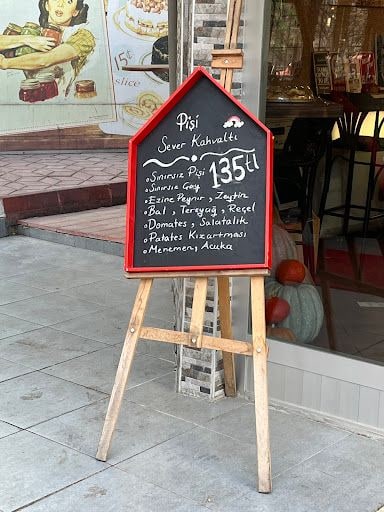 15₺
slice
Pişi
Sever Kahvaltı
135tl
Sınırsız Pişi
Sınırsız Çay
Ezine Peynir, Zeytin
Bal, Tereyağ, Reçel
Domates, Salatalık
Patates Kızartması
Menemen, Acuka